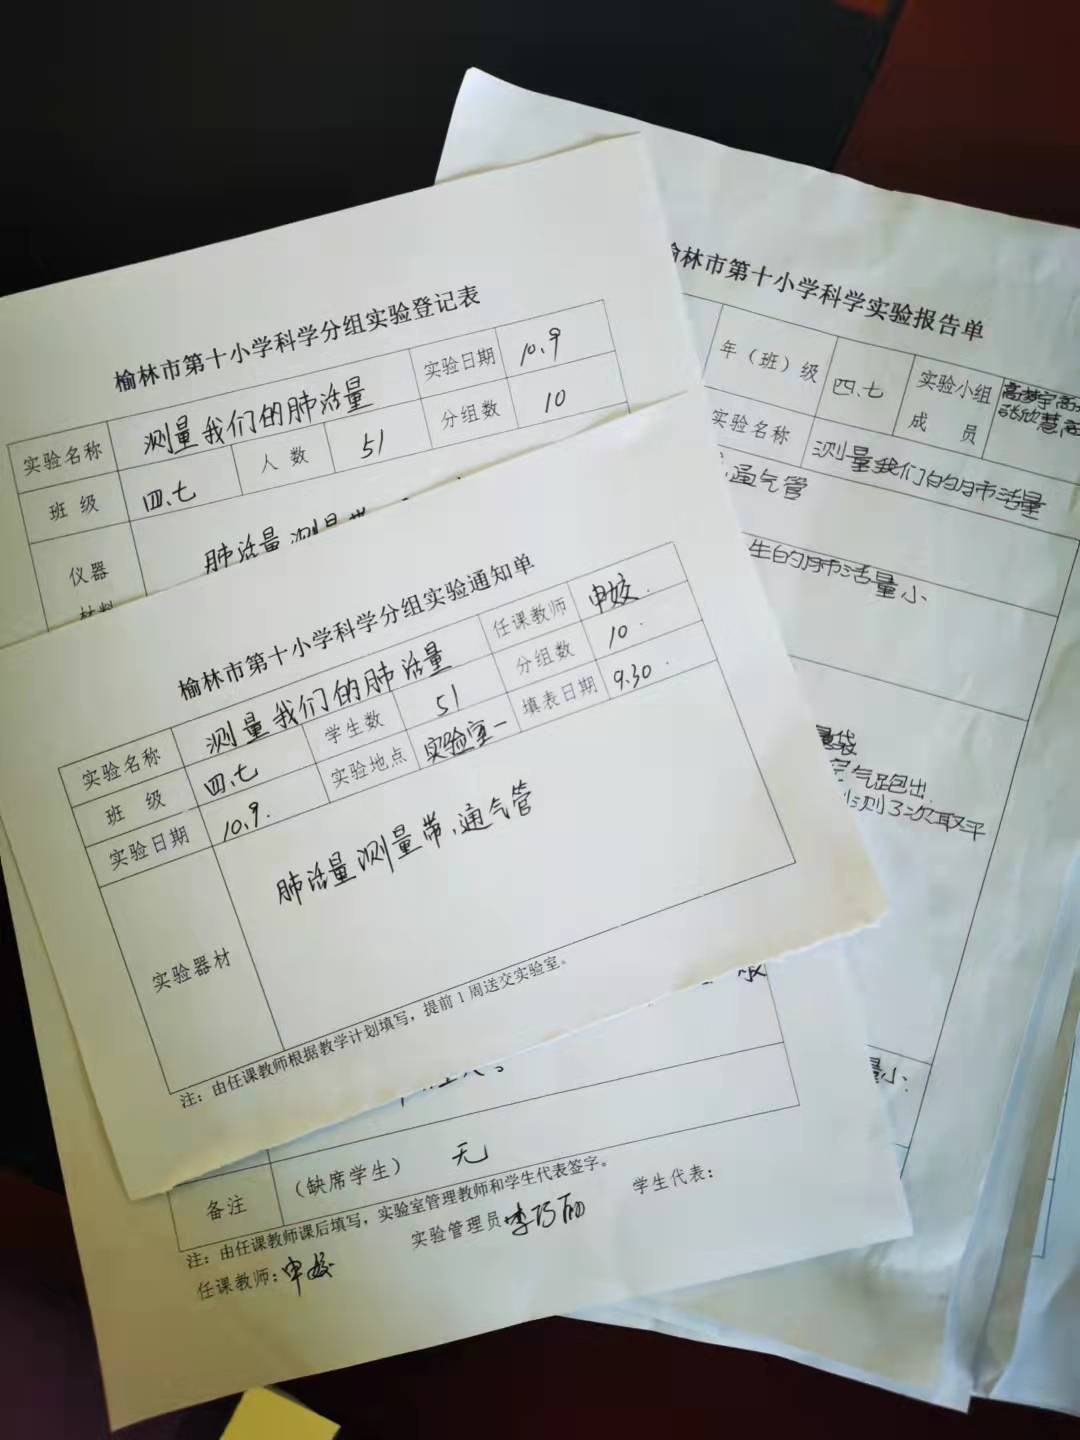 榆林市第十小学科学分组实验登记表
实验名称 测量我们的肺活量 实验日期 10.9
班 级 四.七 人 数 51 分组数 10
仪器 肺活量测量
榆林市第十小学科学分组实验通知单
实验名称 测量我们的肺活量 任课教师
班 级 四.七 学生数 51 分组数 10
实验日期 10.9. 实验地点 实验室一 填表日期 9.30
实验器材 肺活量测量带、通气管
注：由任课教师根据教学计划填写，提前1周送交实验室。
备注 （缺席学生） 无
注：由任课教师课后填写，实验室管理教师和学生代表签字。
任课教师： 实验管理员 学生代表：
榆林市第十小学科学实验报告单
年（班）级 四.七 实验小组
成 员
实验名称 测量我们的肺活量
通气管
生的肺活量小
量袋
气跑出
测了3次取平
量小